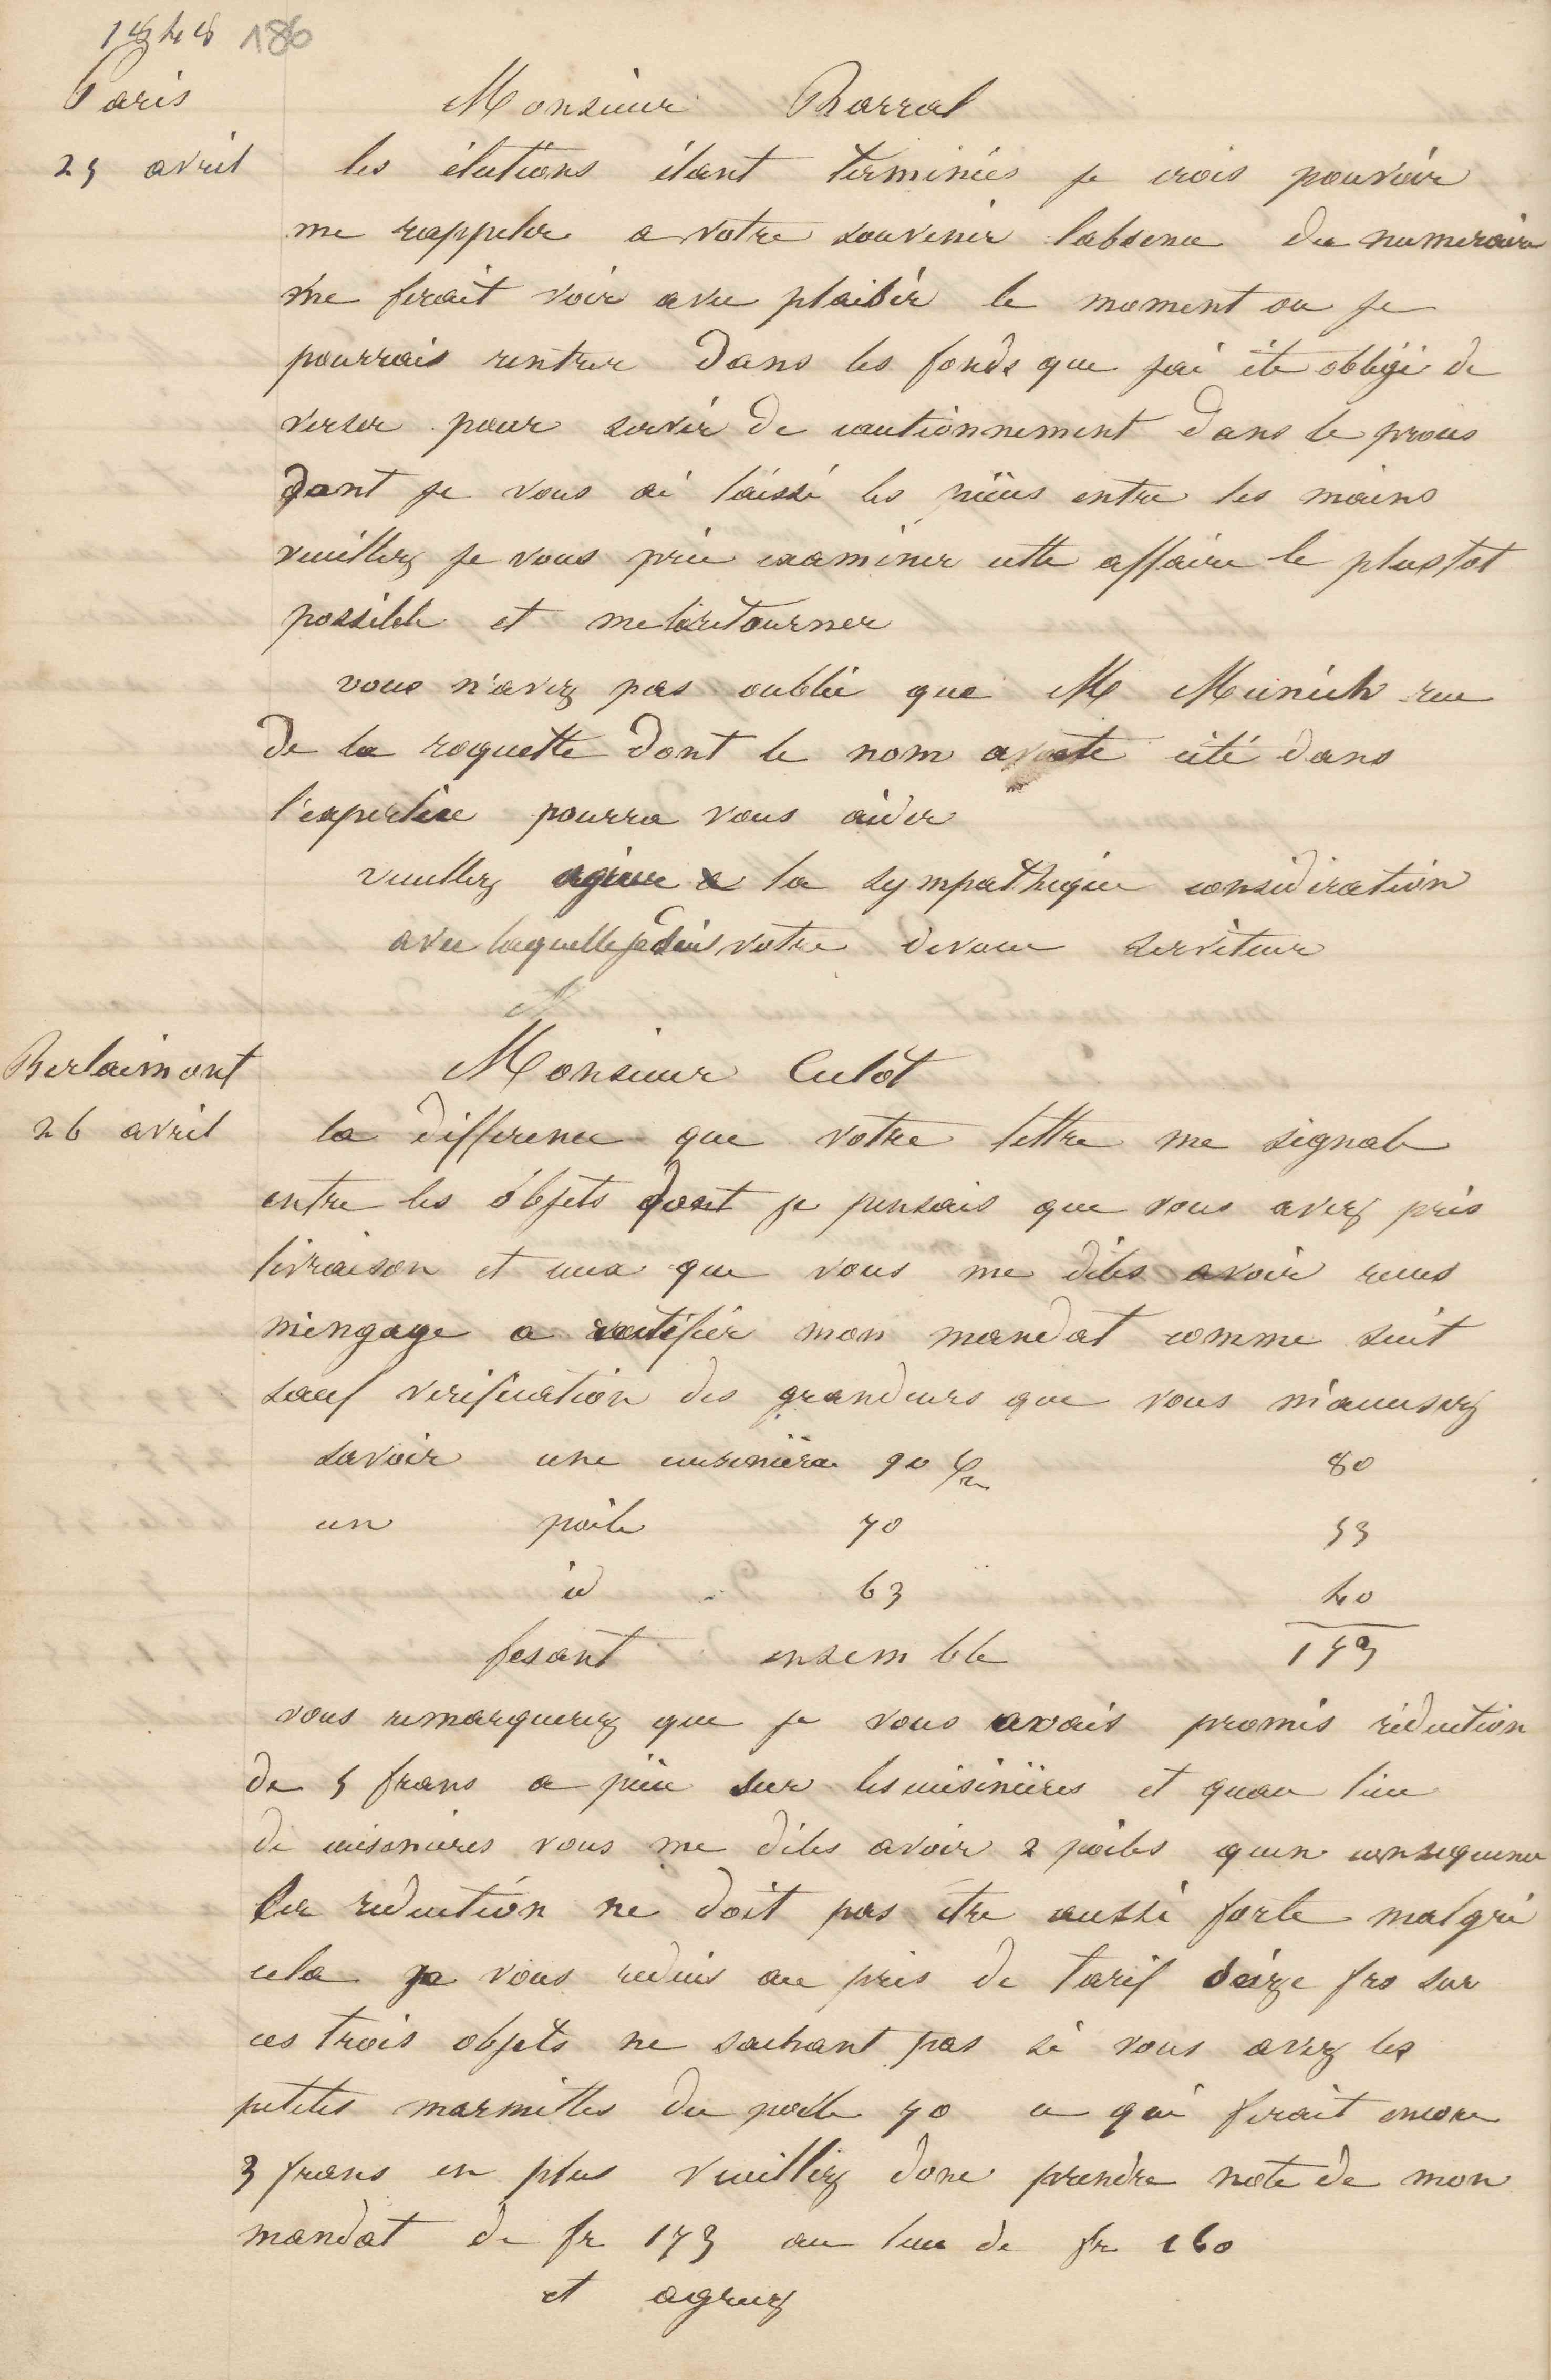 1848 186
Paris
Monsieur Barral
25 avril
les élections étant terminées je crois pouvoir
me rappeler a votre souvenir labsence du numeraire
me ferait voir avec plaisir le moment ou je
pourrais rentrer dans les fonds que jai été obligé de
verser pour servir de cautionnement dans le procès
dont je vous ai laissé les pièces entre les mains
veuillez je vous prie examiner cette affaire le plustot
possible et me la retourner
vous n'avez pas oublié que M Munich rue
de la roquette dont le nom a été cité dans
l'expertise pourra vous aider
veuillez agréer la sympathique consideration
avec laquelle je suis votre devoué serviteur
Berlaimont
Monsieur Culot
26 avril
la difference que votre lettre me signale
entre les objets dont je pensais que vous avez pris
livraison et ceux que vous me dites avoir recus
m'engage a rectifier mon mandat comme suit
sauf verification des grandeurs que vous m'accusez
savoir une cuisinière 90 80
un poile 70 53
id 63 40
fesant ensemble 173
vous remarquerez que je vous avais promis réduction
de 5 francs a pièce sur les cuisinières et quau lieu
de cuisinieres vous me dites avoir 2 poiles quen consequence
la reduction ne doit pas etre aussi forte malgré
cela je vous reduis au prix de tarif seize frs sur
ces trois objets ne sachant pas si vous avez les
petites marmittes du poile 70 ce qui ferait encore
3 francs en plus veuillez donc prendre note de mon
mandat de fr 173 au lieu de fr 160
et agreez